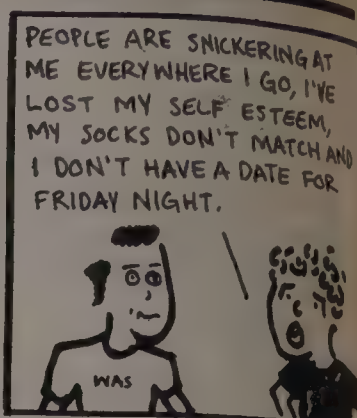 PEOPLE ARE SNICKERING AT
ME EVERYWHERE I GO, I'VE
LOST MY SELF ESTEEM,
MY SOCKS DON'T MATCH AND
I DON'T HAVE A DATE FOR
FRIDAY NIGHT.
WAS